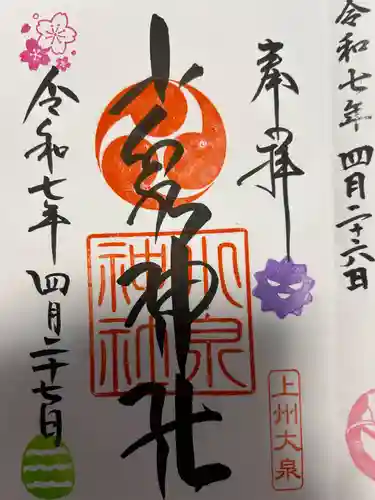 令和七年 四月二十六日
奉拝
上州大泉
小泉神社
小泉
神社
令和七年 四月二十七日